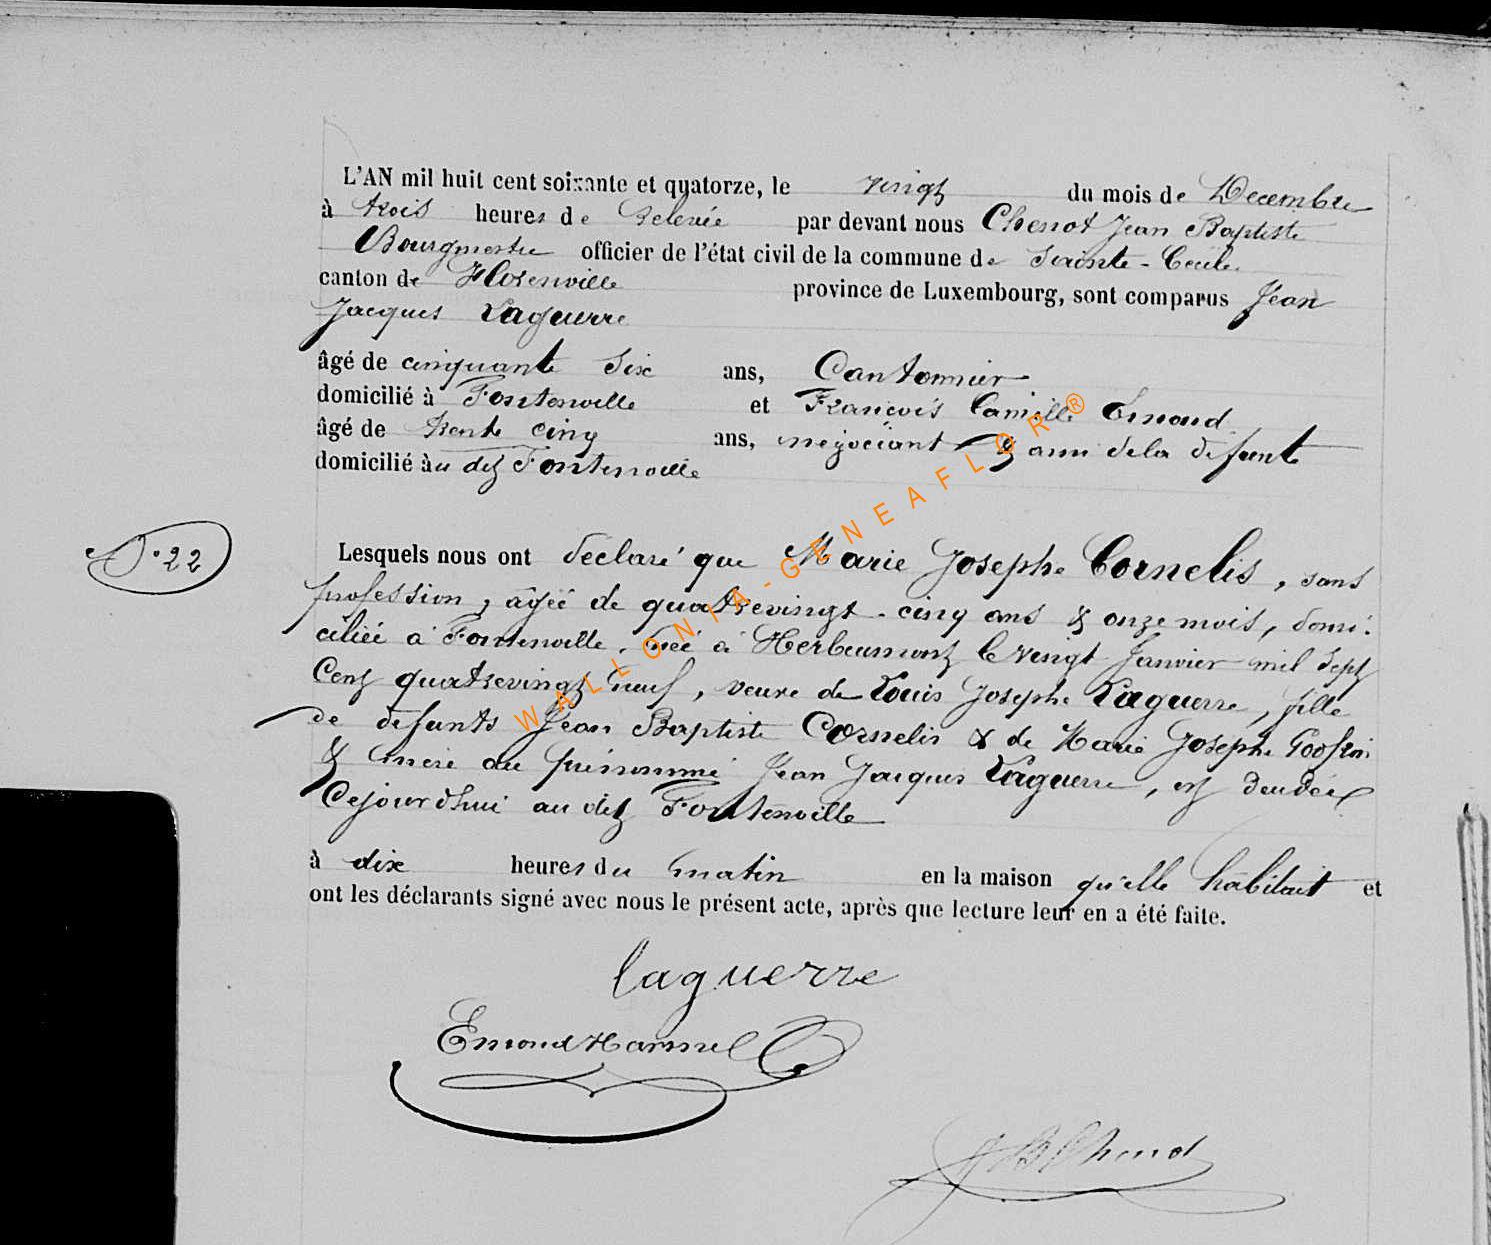 L'AN mil huit cent soixante et quatorze, le vingt du mois de Décembre
à trois heures de Relevée par devant nous Chenot Jean Baptiste
Bourgmestre officier de l'état civil de la commune de Sainte-Cécile
canton de Florenville province de Luxembourg, sont comparus Jean
Jacques Laguerre
âgé de cinquante Six ans, Cantonnier
domicilié à Fontenoille et François Camille Emond
âgé de trente cinq ans, négociant & ami dela défunte
domicilié au dit Fontenoille
N°.22
Lesquels nous ont déclaré que Marie Josephe Cornelis, sans
profession, âgée de quatrevingt-cinq ans & onze mois, domi-
ciliée à Fontenoille, née à Herbeumont le vingt Janvier mil sept
Cent quatrevingt neuf, veuve de Louis Josephe Laguerre, fille
de défunts Jean Baptiste Cornelis & de Marie Josephe Godfroi
& mère au prénommé Jean Jacques Laguerre, est décédée
Cejourd'hui au dit Fontenoille
à dix heures du matin en la maison qu'elle habitait et
ont les déclarants signé avec nous le présent acte, après que lecture leur en a été faite.
laguerre
Emond Hamel
JB Chenot
WALLONIA-GENEAFLOR®